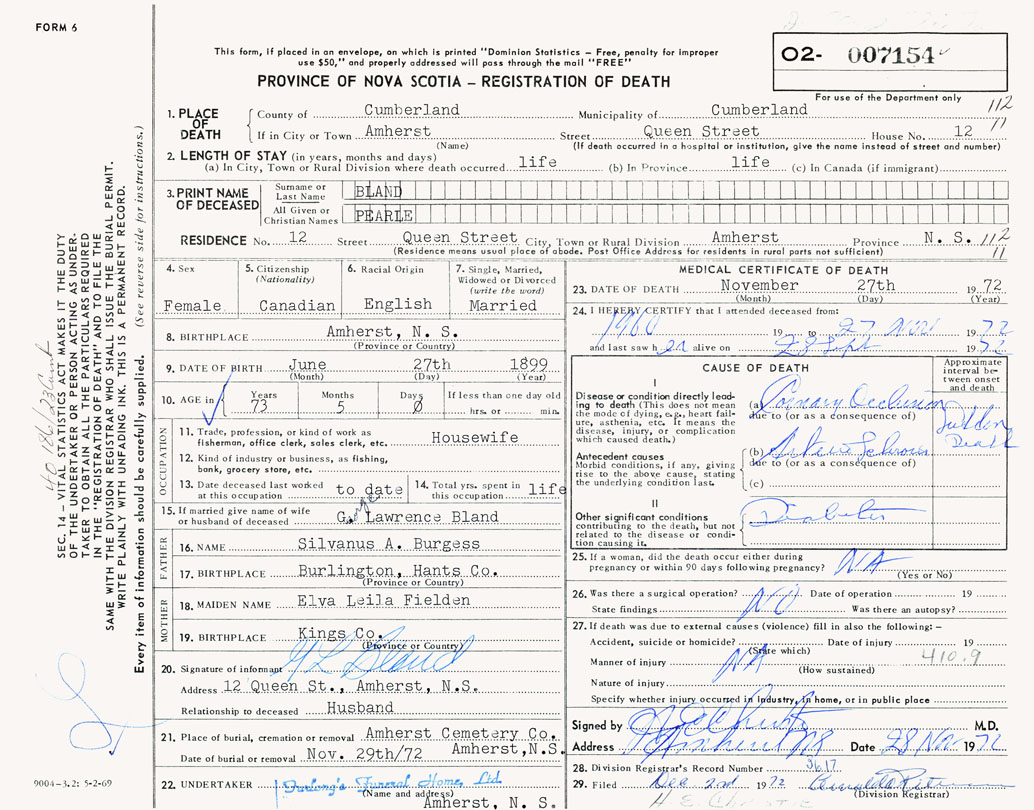 FORM 6
This form, if placed in an envelope, on which is printed "Dominion Statistics – Free, penalty for improper
use $50," and properly addressed will pass through the mail "FREE"
PROVINCE OF NOVA SCOTIA – REGISTRATION OF DEATH
O2- 007154
For use of the Department only
112
11
1. PLACE OF DEATH
County of Cumberland Municipality of Cumberland
If in City or Town Amherst Street Queen Street House No. 12
(Name) (If death occurred in a hospital or institution, give the name instead of street and number)
2. LENGTH OF STAY (in years, months and days)
(a) In City, Town or Rural Division where death occurred life (b) In Province life (c) In Canada (if immigrant)
3. PRINT NAME OF DECEASED
Surname or Last Name BLAND
All Given or Christian Names PEARLE
RESIDENCE No. 12 Street Queen Street City, Town or Rural Division Amherst Province N. S. 112
(Residence means usual place of abode. Post Office Address for residents in rural parts not sufficient) 11
4. Sex
Female
5. Citizenship
(Nationality)
Canadian
6. Racial Origin
English
7. Single, Married,
Widowed or Divorced
(write the word)
Married
8. BIRTHPLACE Amherst, N. S.
(Province or Country)
9. DATE OF BIRTH June 27th 1899
(Month) (Day) (Year)
10. AGE in
Years Months Days If less than one day old
73 5 0 hrs. or min.
OCCUPATION
11. Trade, profession, or kind of work as
fisherman, office clerk, sales clerk, etc. Housewife
12. Kind of industry or business, as fishing,
bank, grocery store, etc.
13. Date deceased last worked
at this occupation to date
14. Total yrs. spent in
this occupation life
15. If married give name of wife
or husband of deceased G. Lawrence Bland
FATHER
16. NAME Silvanus A. Burgess
17. BIRTHPLACE Burlington, Hants Co.
(Province or Country)
MOTHER
18. MAIDEN NAME Elva Leila Fielden
19. BIRTHPLACE Kings Co.
(Province or Country)
20. Signature of informant G L Bland
Address 12 Queen St., Amherst, N.S.
Relationship to deceased Husband
21. Place of burial, cremation or removal Amherst Cemetery Co.
Amherst, N.S.
Date of burial or removal Nov. 29th/72
22. UNDERTAKER Furlong's Funeral Home, Ltd.
(Name and address)
Amherst, N. S.
MEDICAL CERTIFICATE OF DEATH
23. DATE OF DEATH November 27th 1972
(Month) (Day) (Year)
24. I HEREBY CERTIFY that I attended deceased from:
1960 19 to 27 Nov 1972
and last saw her alive on 28 Sept 1972
CAUSE OF DEATH
Approximate
interval be-
tween onset
and death
I
Disease or condition directly lead-
ing to death (This does not mean
the mode of dying, e.g., heart fail-
ure, asthenia, etc. It means the
disease, injury, or complication
which caused death.)
(a) Coronary Occlusion
due to (or as a consequence of)
Sudden
Death
Antecedent causes
Morbid conditions, if any, giving
rise to the above cause, stating
the underlying condition last.
(b) Arteriosclerosis
due to (or as a consequence of)
(c)
II
Other significant conditions
contributing to the death, but not
related to the disease or condi-
tion causing it.
Diabetes
25. If a woman, did the death occur either during
pregnancy or within 90 days following pregnancy? NA
(Yes or No)
26. Was there a surgical operation? NO Date of operation 19
State findings Was there an autopsy?
27. If death was due to external causes (violence) fill in also the following: –
Accident, suicide or homicide? Date of injury 19
(State which)
410.9
Manner of injury NA
(How sustained)
Nature of injury
Specify whether injury occurred in industry, in home, or in public place
Signed by M.D.
Address Amherst NS Date 28 Nov 1972
28. Division Registrar's Record Number 3617
29. Filed Dec 2nd 1972
(Division Registrar)
H E CHRISTIE
SEC. 14 – VITAL STATISTICS ACT MAKES IT THE DUTY
OF THE UNDERTAKER OR PERSON ACTING AS UNDER-
TAKER TO OBTAIN ALL THE PARTICULARS REQUIRED
IN THE "REGISTRATION OF DEATH" AND TO FILE THE
SAME WITH THE DIVISION REGISTRAR WHO SHALL ISSUE THE BURIAL PERMIT.
WRITE PLAINLY WITH UNFADING INK. THIS IS A PERMANENT RECORD.
Every item of information should be carefully supplied. (See reverse side for instructions.)
9004-3.2: 5-2-69